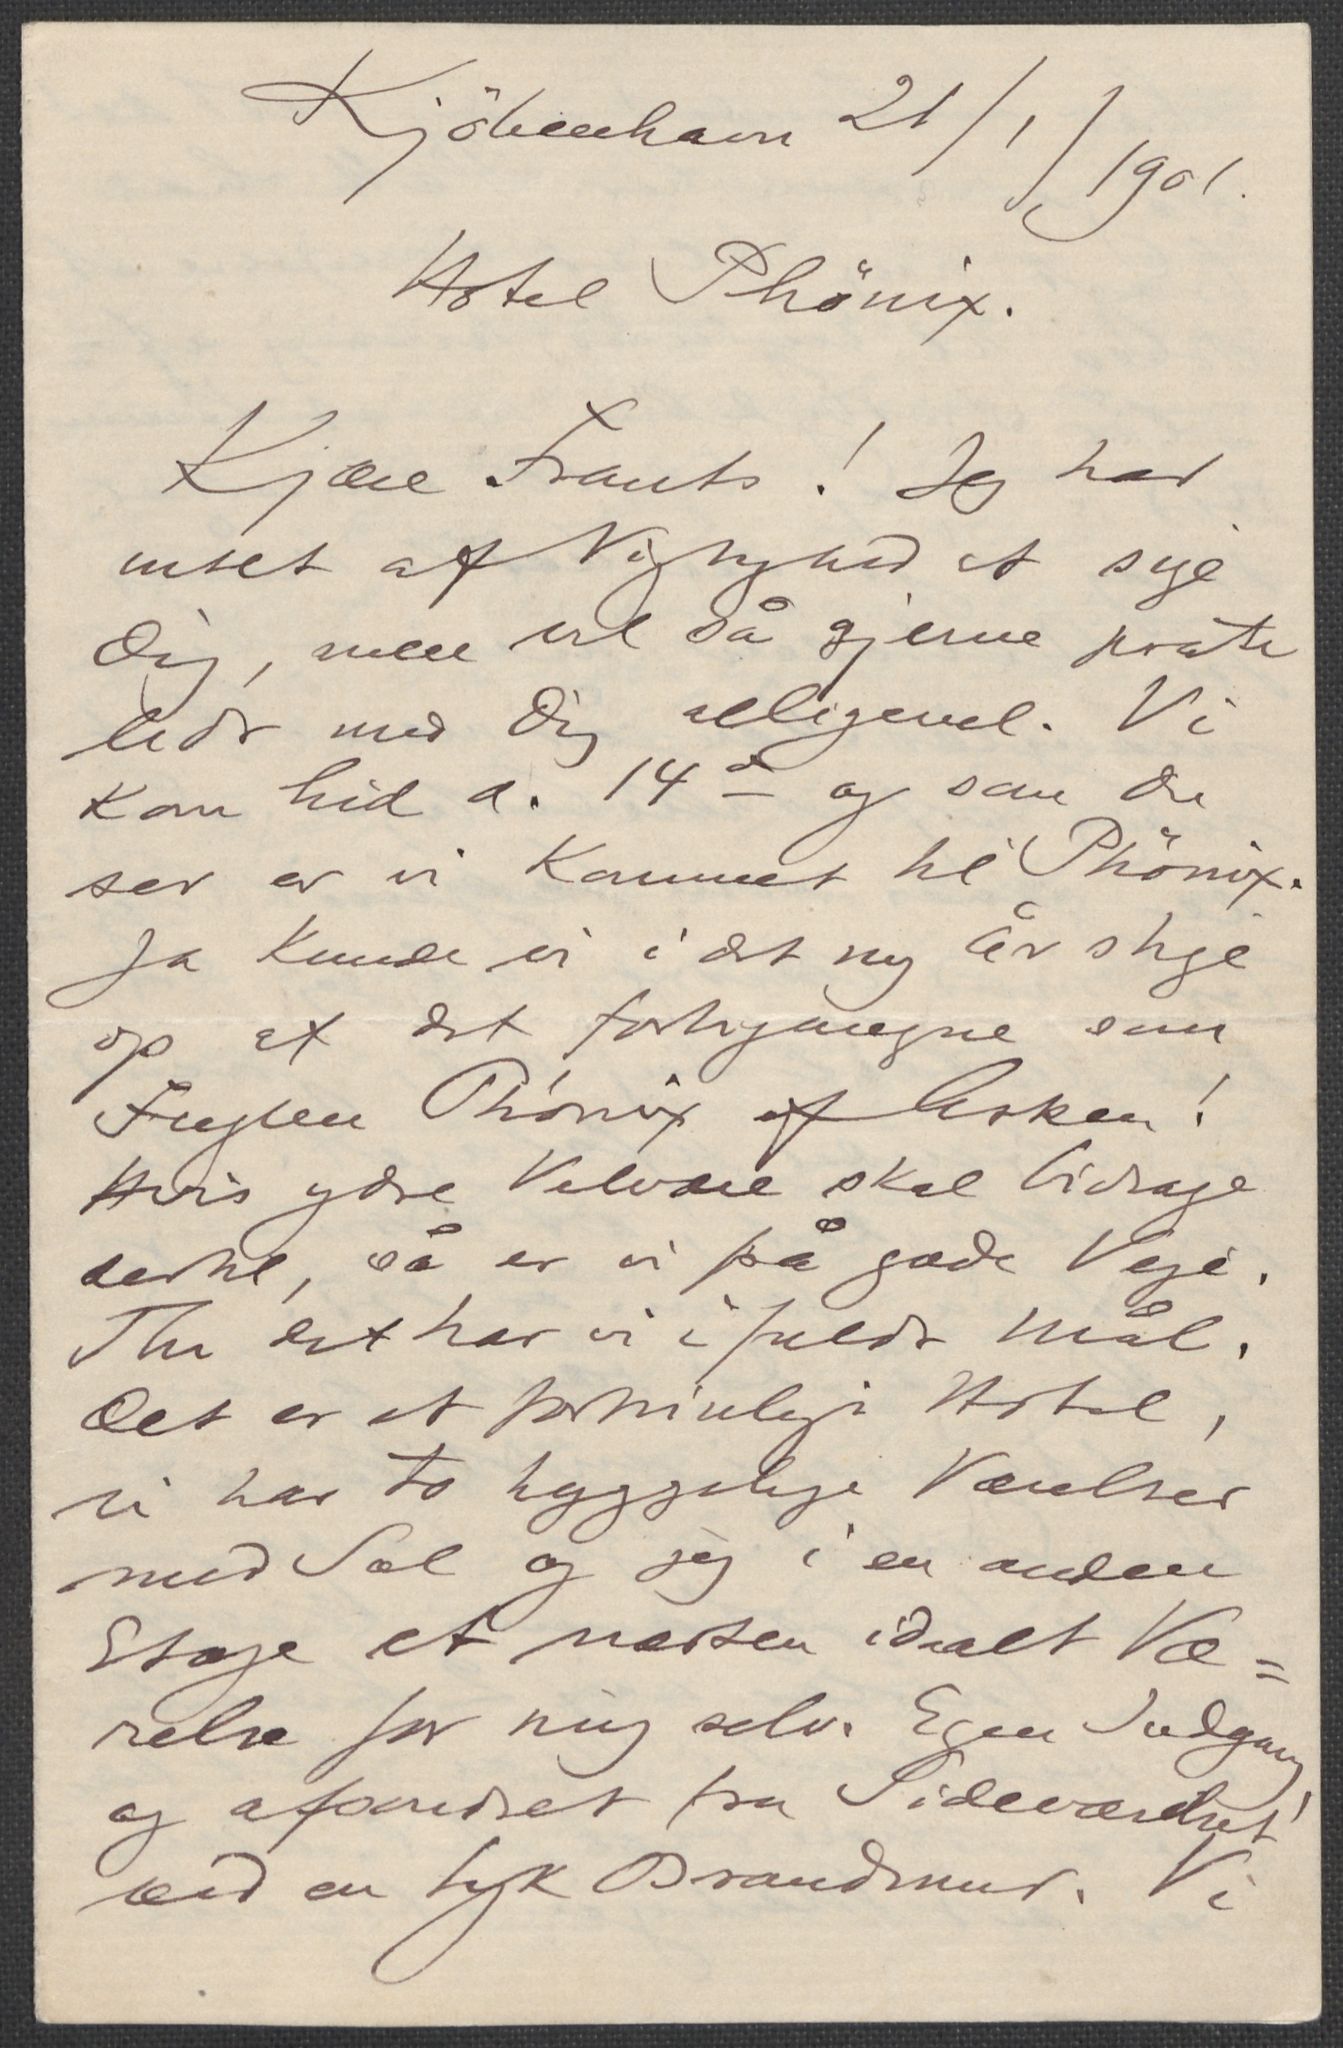 Kjöbenhavn 21/1/1901.
Hotel Phönix.
Kjære Frants! Jeg har
intet af Vigtighed at sige
Dig, men vil så gjerne prate
lidt med Dig alligevel. Vi
kom hid d. 14de og som Du
ser er vi kommet til Phönix.
Ja kunde vi i det ny år stige
op af det forhgangne som
Fuglen Phönix af Asken!
Hvis ydre Velvære skal bidrage
dertil, så er vi på gode Veje.
Thi det har vi i fuldt Mål.
Det er et fortrinligt Hotel,
vi har to hyggelige Værelser
med Sol og jeg i en anden
Etage et næsten idealt Væ=
relse for mig selv. Egen Indgang
og afsondret fra Sideværelset
ved en tyk Brandmur. Vi